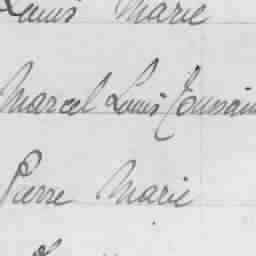 Louis Marie
Marcel Louis Toussain
Pierre Marie